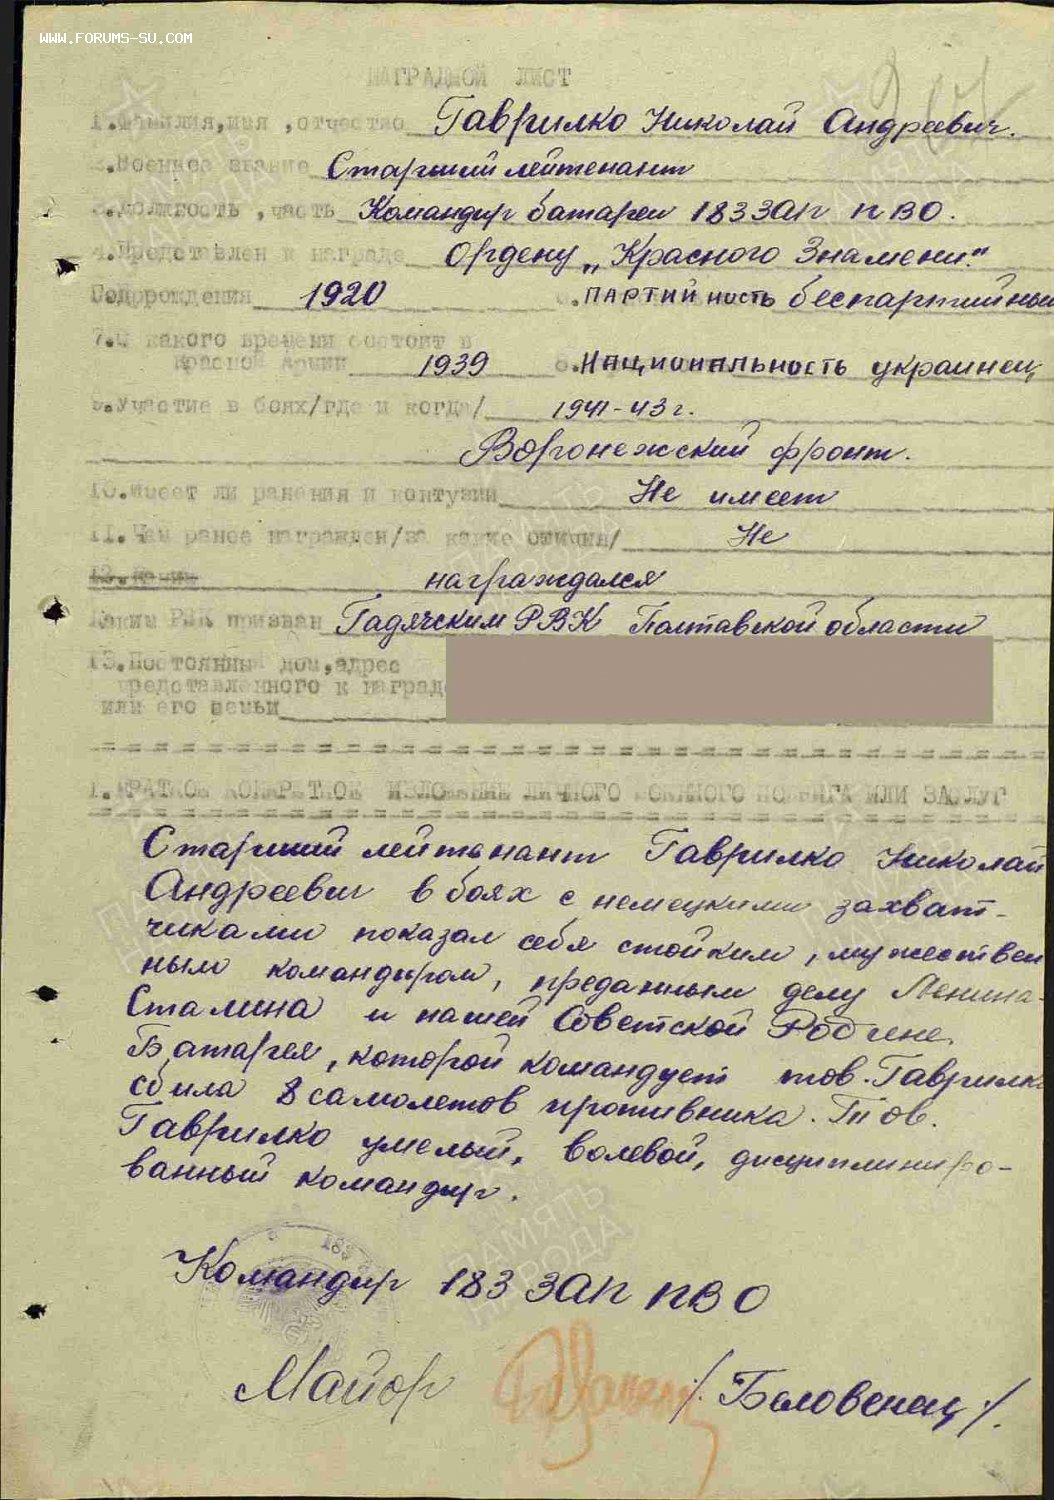 WWW.FORUMS-SU.COM
НАГРАДНОЙ ЛИСТ
1.Фамилия,имя ,отчество Гаврилко Николай Андреевич.
2.Военное звание Старший лейтенант
3.Должность ,часть Командир батареи 183 ЗАП ПВО.
4.Представлен к награде Ордену „Красного Знамени."
Год рождения 1920 6. ПАРТИЙНОСТЬ беспартийный
7.С какого времени состоит в
Красной Армии 1939 8. НАЦИОНАЛЬНОСТЬ украинец
9.Участие в боях/где и когда/ 1941-43 г.
Воронежский фронт.
10.Имеет ли ранения и контузии Не имеет
11.Чем ранее награжден/за какие отличия/ Не
12.Каким награждался
Каким РВК призван Гадячским РВК Полтавской области
13.Постоянный дом,адрес
представленного к награде
или его семьи
1.КРАТКОЕ КОНКРЕТНОЕ ИЗЛОЖЕНИЕ ЛИЧНОГО БОЕВОГО ПОДВИГА ИЛИ ЗАСЛУГ
Старший лейтенант Гаврилко Николай
Андреевич в боях с немецкими захват-
чиками показал себя стойким, мужествен
ным командиром, преданным делу Ленина-
Сталина и нашей Советской Родине.
Батарея, которой командует тов. Гаврилко
сбила 8 самолетов противника. Тов.
Гаврилко умелый, волевой, дисциплиниро-
ванный командир.
Командир 183 ЗАП ПВО
Майор /. Беловенец ./.
ПАМЯТЬ НАРОДА